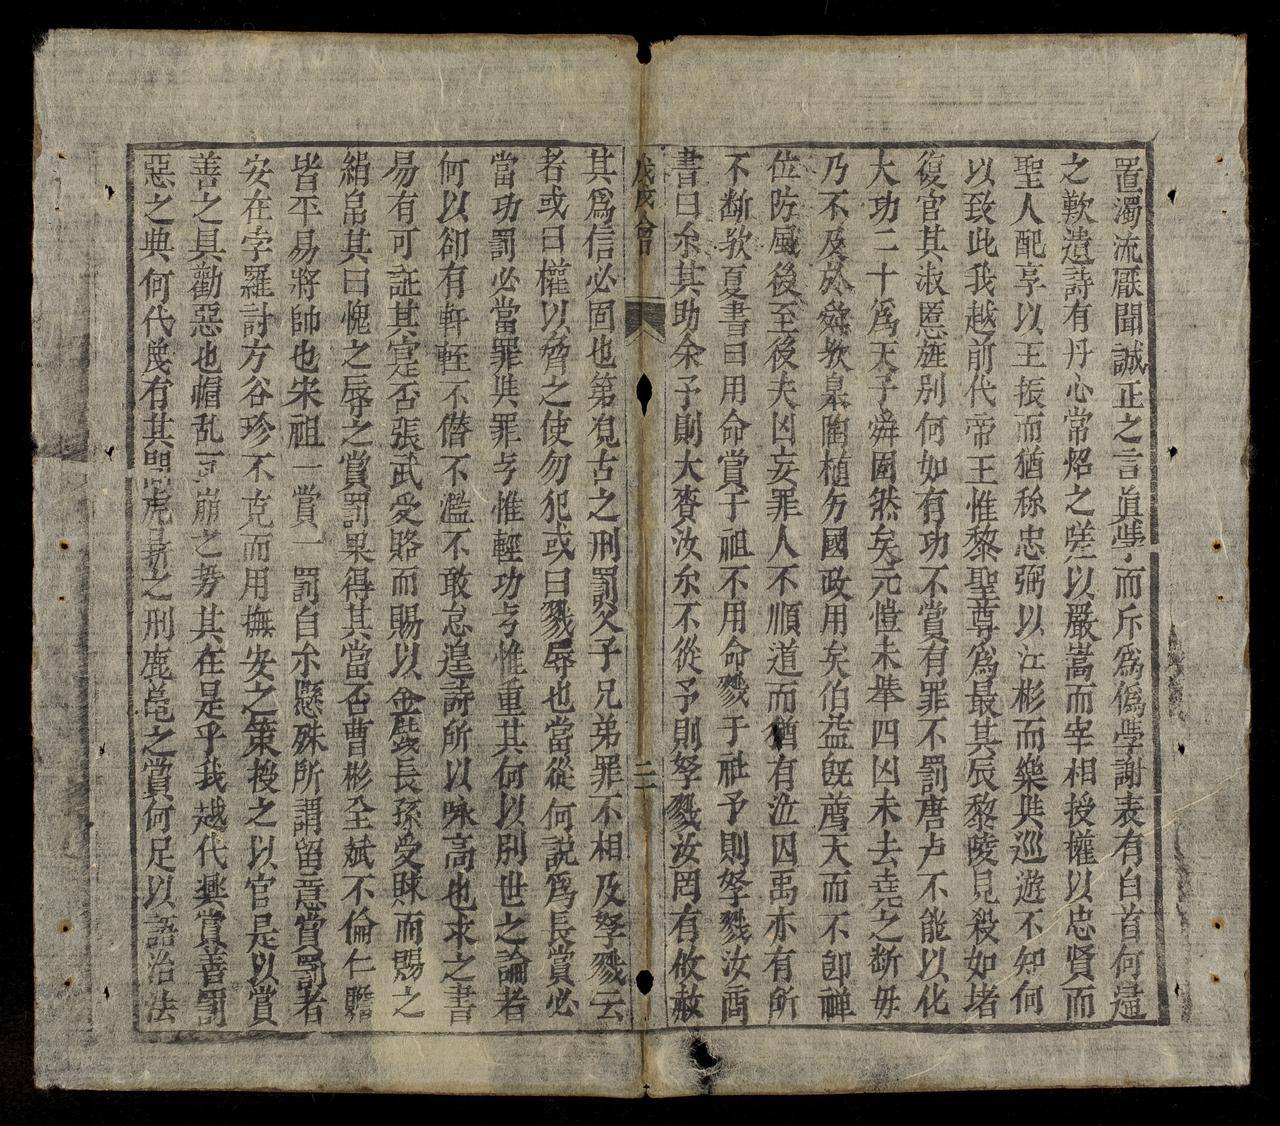 置濁流厭聞誠正之言眞斈而斥爲僞斈謝表有白首何遺
之歎遺詩有丹心常炤之嗟以嚴嵩而宰相授權以忠賢而
聖人配享以王振而猶称忠弼以江彬而樂與巡遊不知何
以致此我越前代帝王惟黎聖尊爲最其辰黎陵見殺如堵
復官其淑慝旌別何如有功不賞有罪不罰唐卢不能以化
大功二十爲天子舜固然矣元愷未舉四凶未去尭之断毋
乃不及於舜欤臯陶植另國政用矣伯益旣薦天而不卽禅
位防風後至後夫凶妄罪人不順道而猶有泣囚禹亦有所
不断欤夏書曰用命賞于祖不用命戮于社予則孥戮汝商
書曰尔其助余予則大賚汝尔不從予則孥戮汝罔有攸赦
戊戌會
二
其爲信必固也第覌古之刑罰父子兄弟罪不相及孥戮云
者或曰權以脅之使勿犯或曰戮辱也當從何説爲長賞必
當功罰必當罪與罪与惟輕功与惟重其何以别世之論者
何以卻有軒輊不僣不濫不敢怠遑詩所以咏高也求之書
易有可証其寔否張武受賂而賜以金長孫受賕而賜之
絹帛其曰愧之辱之賞罰果得其當否曹彬全斌不倫仁贍
皆平易將帥也宋祖一賞一罰自尔懸殊所謂留意賞罰者
安在孛羅討方谷珍不克而用撫安之策授之以官是以賞
善之具勸惡也帽乱瓦崩之势其在是乎我越代興賞善罰
惡之典何代蔑有其虎之刑鹿之賞何足以語治法